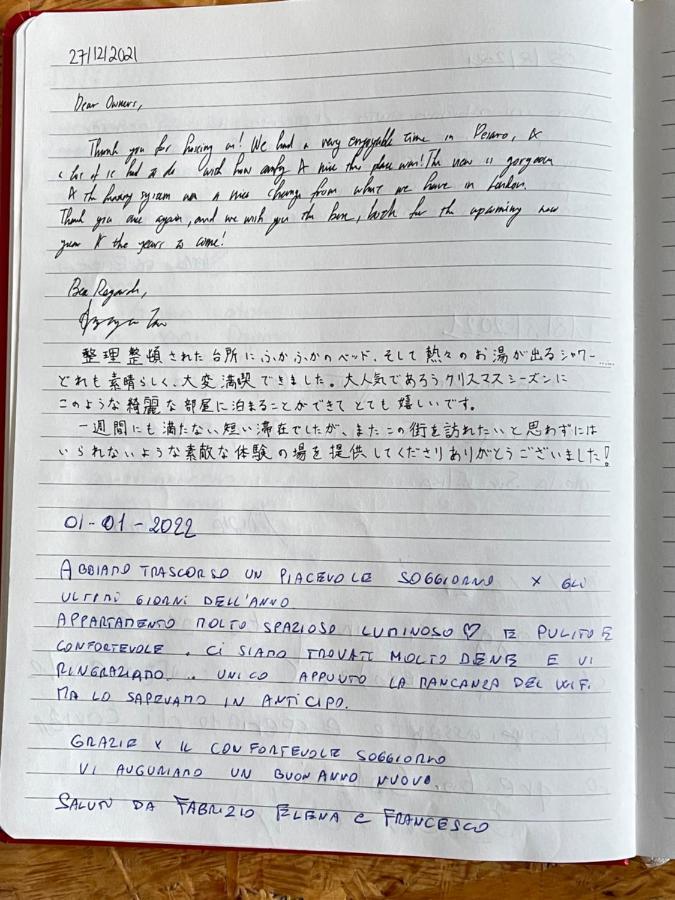 27/12/2021
Dear Owners,
Thank you for having us! We had a very enjoyable time in Pesaro, &
a lot of it had to do with how comfy & nice the place was! The view is gorgeous
& the heating system was a nice change from what we have in London.
Thank you once again, and we wish you the best, both for the upcoming new
year & the years to come!
Best Regards,
整理整頓された台所にふかふかのベッド、そして熱々のお湯が出るシャワー……
どれも素晴らしく、大変満喫できました。大人気であろうクリスマスシーズンに
このような綺麗な部屋に泊まることができてとても嬉しいです。
一週間にも満たない短い滞在でしたが、またこの街を訪れたいと思わずには
いられないような素敵な体験の場を提供してくださりありがとうございました!
01-01-2022
ABBIAMO TRASCORSO UN PIACEVOLE SOGGIORNO X GLI
ULTIMI GIORNI DELL'ANNO
APPARTAMENTO MOLTO SPAZIOSO LUMINOSO ♡ E PULITO E
CONFORTEVOLE. CI SIAMO TROVATI MOLTO BENE E VI
RINGRAZIAMO.. UNICO APPUNTO LA MANCANZA DEL WIFI
MA LO SAPEVAMO IN ANTICIPO.
GRAZIE X IL CONFORTEVOLE SOGGIORNO
VI AUGURIAMO UN BUON ANNO NUOVO.
SALUTI DA FABRIZIO ELENA E FRANCESCO